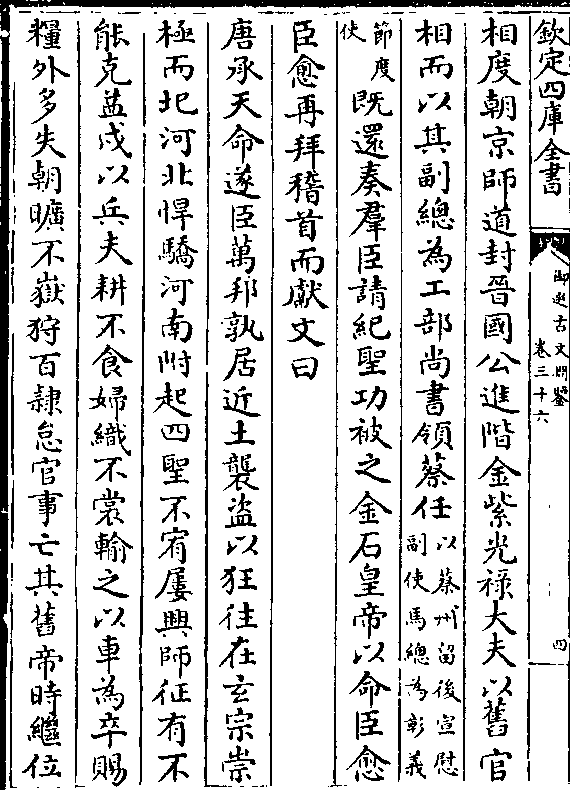 欽定四庫全書
御選古文淵鑒
卷三十六
四
相度朝京師道封晉國公進階金紫光祿大夫以舊官
相而以其副總為工部尚書領蔡任以蔡州留後宣慰副使馬總為彰義
節度使既還奏羣臣請紀聖功被之金石皇帝以命臣愈
臣愈再拜稽首而獻文曰
唐承天命遂臣萬邦孰居近土襲盜以狂往在玄宗崇
極而圮河北悍驕河南附起四聖不宥屢興師征有不
能克益戍以兵夫耕不食婦織不裳輸之以車為卒賜
糧外多失朝曠不嶽狩百隸怠官事亡其舊帝時繼位